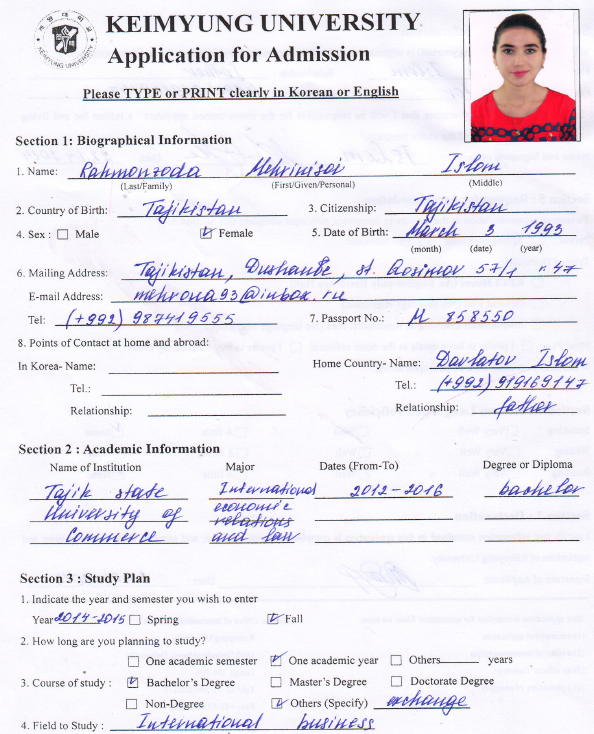 KEIMYUNG UNIVERSITY
Application for Admission
Please TYPE or PRINT clearly in Korean or English
Section 1: Biographical Information
1. Name: Rahmonzoda Mehrinisoi Islom
(Last/Family) (First/Given/Personal) (Middle)
2. Country of Birth: Tajikistan 3. Citizenship: Tajikistan
4. Sex : Male Female 5. Date of Birth: March 3 1993
(month) (date) (year)
6. Mailing Address: Tajikistan, Dushanbe, st. Qosimov 57/1 r. 47
E-mail Address: mehrona93@inbox.ru
Tel: (+992) 987419555 7. Passport No.: M 858550
8. Points of Contact at home and abroad:
In Korea- Name: Home Country- Name: Davlatov Islom
Tel.: Tel.: (+992) 919169147
Relationship: Relationship: father
Section 2 : Academic Information
Name of Institution Major Dates (From-To) Degree or Diploma
Tajik state International 2012-2016 bachelor
University of economic relations
Commerce and law
Section 3 : Study Plan
1. Indicate the year and semester you wish to enter
Year 2014-2015 Spring Fall
2. How long are you planning to study?
One academic semester One academic year Others years
3. Course of study : Bachelor's Degree Master's Degree Doctorate Degree
Non-Degree Others (Specify) exchange
4. Field to Study : International business